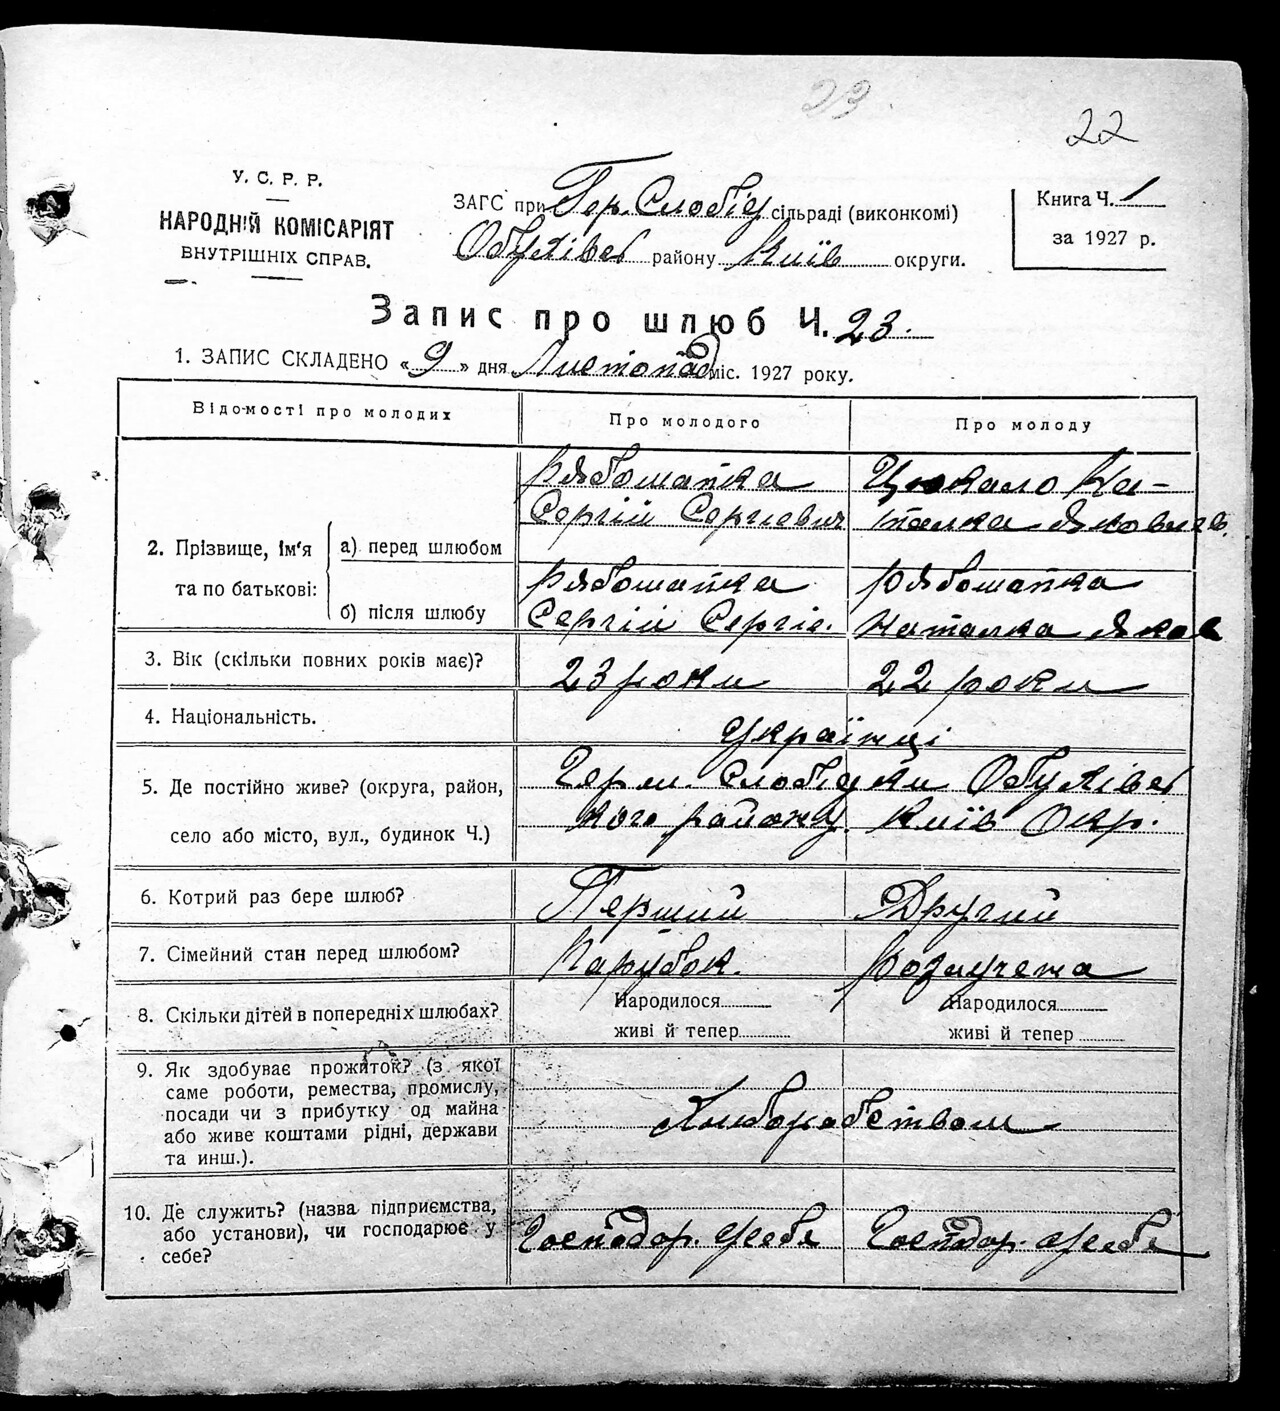 23
22
У. С. Р. Р.
НАРОДНІЙ КОМІСАРІЯТ
ВНУТРІШНІХ СПРАВ.
ЗАГС при Гер. Слобід сільраді (виконкомі)
Обухівсь району Київ округи.
Книга Ч. 1
за 1927 р.
Запис про шлюб Ч. 23.
1. ЗАПИС СКЛАДЕНО «9» дня Листопад міс. 1927 року.
Відомості про молодих Про молодого Про молоду
Рябошапка Цюкало На-
Сергій Сергієвич талка Яковлев.
2. Прізвище, ім'я та по батькові:
а) перед шлюбом
Рябошапка Рябошапка
б) після шлюбу
Сергій Сергіє. Наталка Яков
3. Вік (скільки повних років має)? 23 роки 22 роки
4. Національність. Українці
5. Де постійно живе? (округа, район, Герм. Слобідки Обухівсь
село або місто, вул., будинок Ч.) кого району Київ Окр.
6. Котрий раз бере шлюб? Перший Другий
7. Сімейний стан перед шлюбом? Парубок. Розлучена
8. Скільки дітей в попередніх шлюбах? Народилося Народилося
живі й тепер живі й тепер
9. Як здобуває прожиток? (з якої
саме роботи, ремества, промислу,
посади чи з прибутку од майна
або живе коштами рідні, держави
та инш.).
Хліборобством
10. Де служить? (назва підприємства,
або установи), чи господарює у
себе?
Господар. у себе Господар. у себе